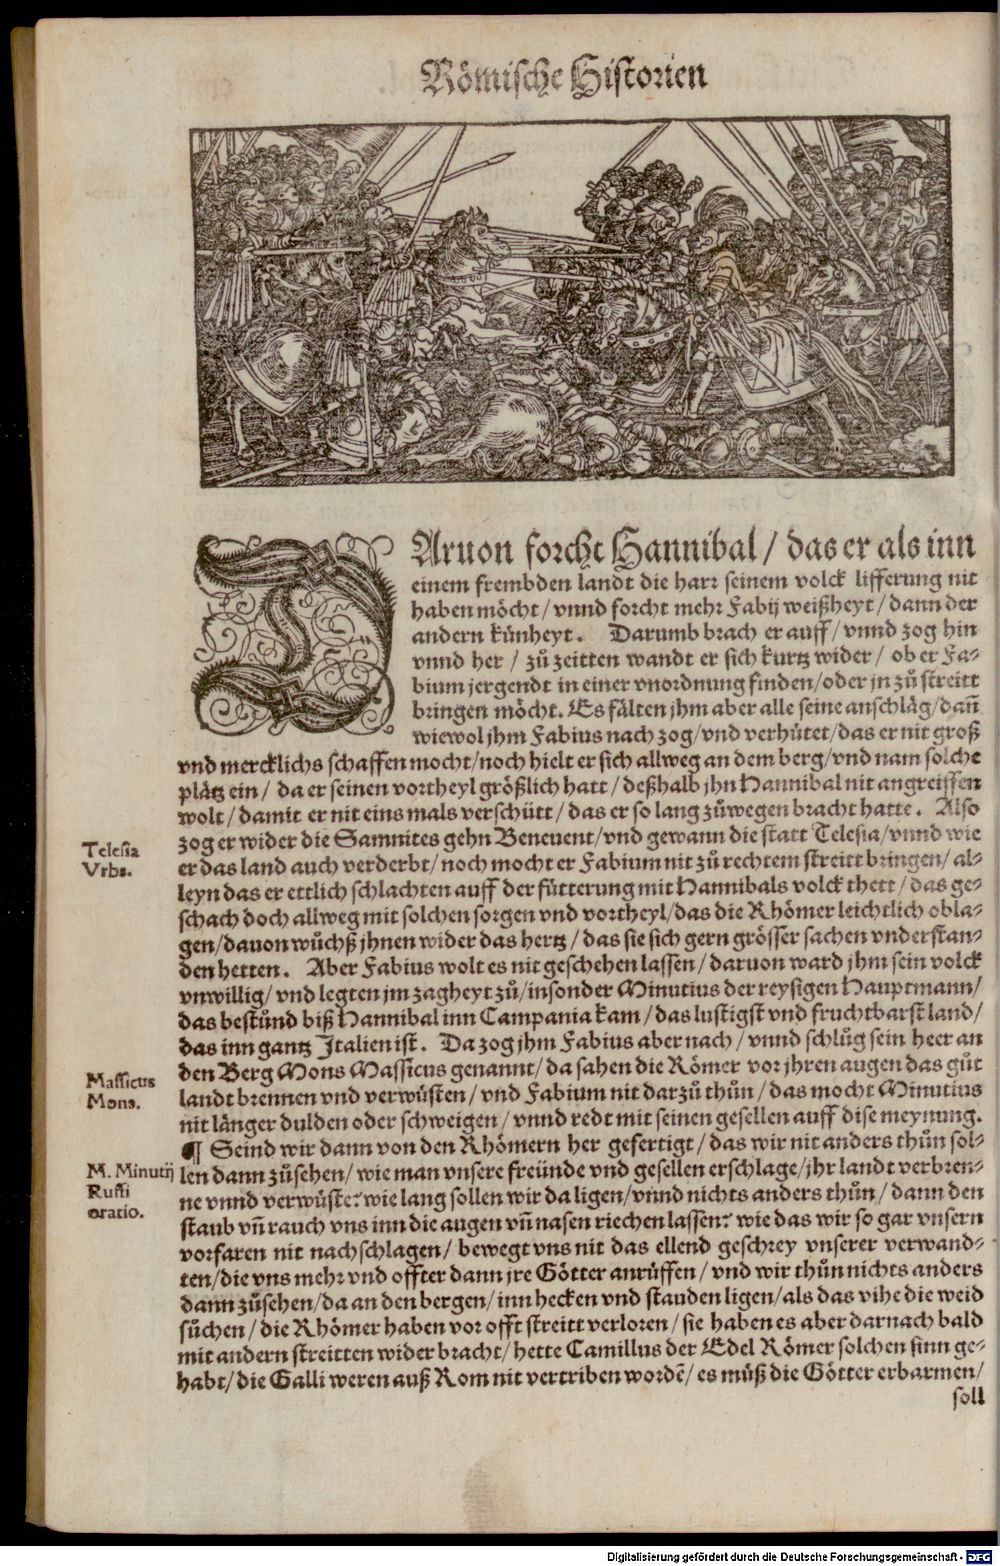 Römische Historien
DArvon forcht Hannibal / das er als inn
einem frembden landt die harr seinem volck lifferung nit
haben möcht / vnnd forcht mehr Fabij weißheyt / dann der
andern künheyt. Darumb brach er auff / vnnd zog hin
vnnd her / zů zeitten wandt er sich kurtz wider / ob er Fa-
bium jergendt in einer vnordnung finden / oder jn zů streitt
bringen möcht. Es fälten jhm aber alle seine anschläg / dañ
wiewol jhm Fabius nach zog / vnd verhütet / das er nit groß
vnd mercklichs schaffen mocht / noch hielt er sich allweg an dem berg / vnd nam solche
plätz ein / da er seinen vortheyl größlich hatt / deßhalb jhn Hannibal nit angreiffen
wolt / damit er nit eins mals verschütt / das er so lang zůwegen bracht hatte. Also
zog er wider die Samnites gehn Beneuent / vnd gewann die statt Telesia / vnnd wie
er das land auch verderbt / noch mocht er Fabium nit zů rechtem streitt bringen / al-
leyn das er ettlich schlachten auff der fütterung mit Hannibals volck thett / das ge-
schach doch allweg mit solchen sorgen vnd vortheyl / das die Rhömer leichtlich obla-
gen / dauon wůchß jhnen wider das hertz / das sie sich gern grösser sachen vnderstan-
den hetten. Aber Fabius wolt es nit geschehen lassen / daruon ward jhm sein volck
vnwillig / vnd legten jm zagheyt zů / insonder Minutius der reysigen Hauptmann /
das bestůnd biß Hannibal inn Campania kam / das lustigst vnd fruchtbarst land /
das inn gantz Italien ist. Da zog jhm Fabius aber nach / vnnd schlůg sein heer an
den Berg Mons Massicus genannt / da sahen die Römer vor jhren augen das gůt
landt brennen vnd verwüsten / vnd Fabium nit darzů thůn / das mocht Minutius
nit länger dulden oder schweigen / vnnd redt mit seinen gesellen auff dise meynung.
¶ Seind wir dann von den Rhömern her gefertigt / das wir nit anders thůn sol-
len dann zůsehen / wie man vnsere freünde vnd gesellen erschlage / jhr landt verbren-
ne vnnd verwüste? wie lang sollen wir da ligen / vnnd nichts anders thůn / dann den
staub vñ rauch vns inn die augen vñ nasen riechen lassen? wie das wir so gar vnsern
vorfaren nit nachschlagen / bewegt vns nit das ellend geschrey vnserer verwand-
ten / die vns mehr vnd offter dann jre Götter anrůffen / vnd wir thůn nichts anders
dann zůsehen / da an den bergen / inn hecken vnd stauden ligen / als das vihe die weid
sůchen / die Rhömer haben vor offt streitt verloren / sie haben es aber darnach bald
mit andern streitten wider bracht / hette Camillus der Edel Römer solchen sinn ge-
habt / die Galli weren auß Rom nit vertriben wordẽ / es můß die Götter erbarmen /
soll
Telesia
Vrbs.
Massicus
Mons.
M. Minutij
Ruffi
oratio.
Digitalisierung gefördert durch die Deutsche Forschungsgemeinschaft - DFG